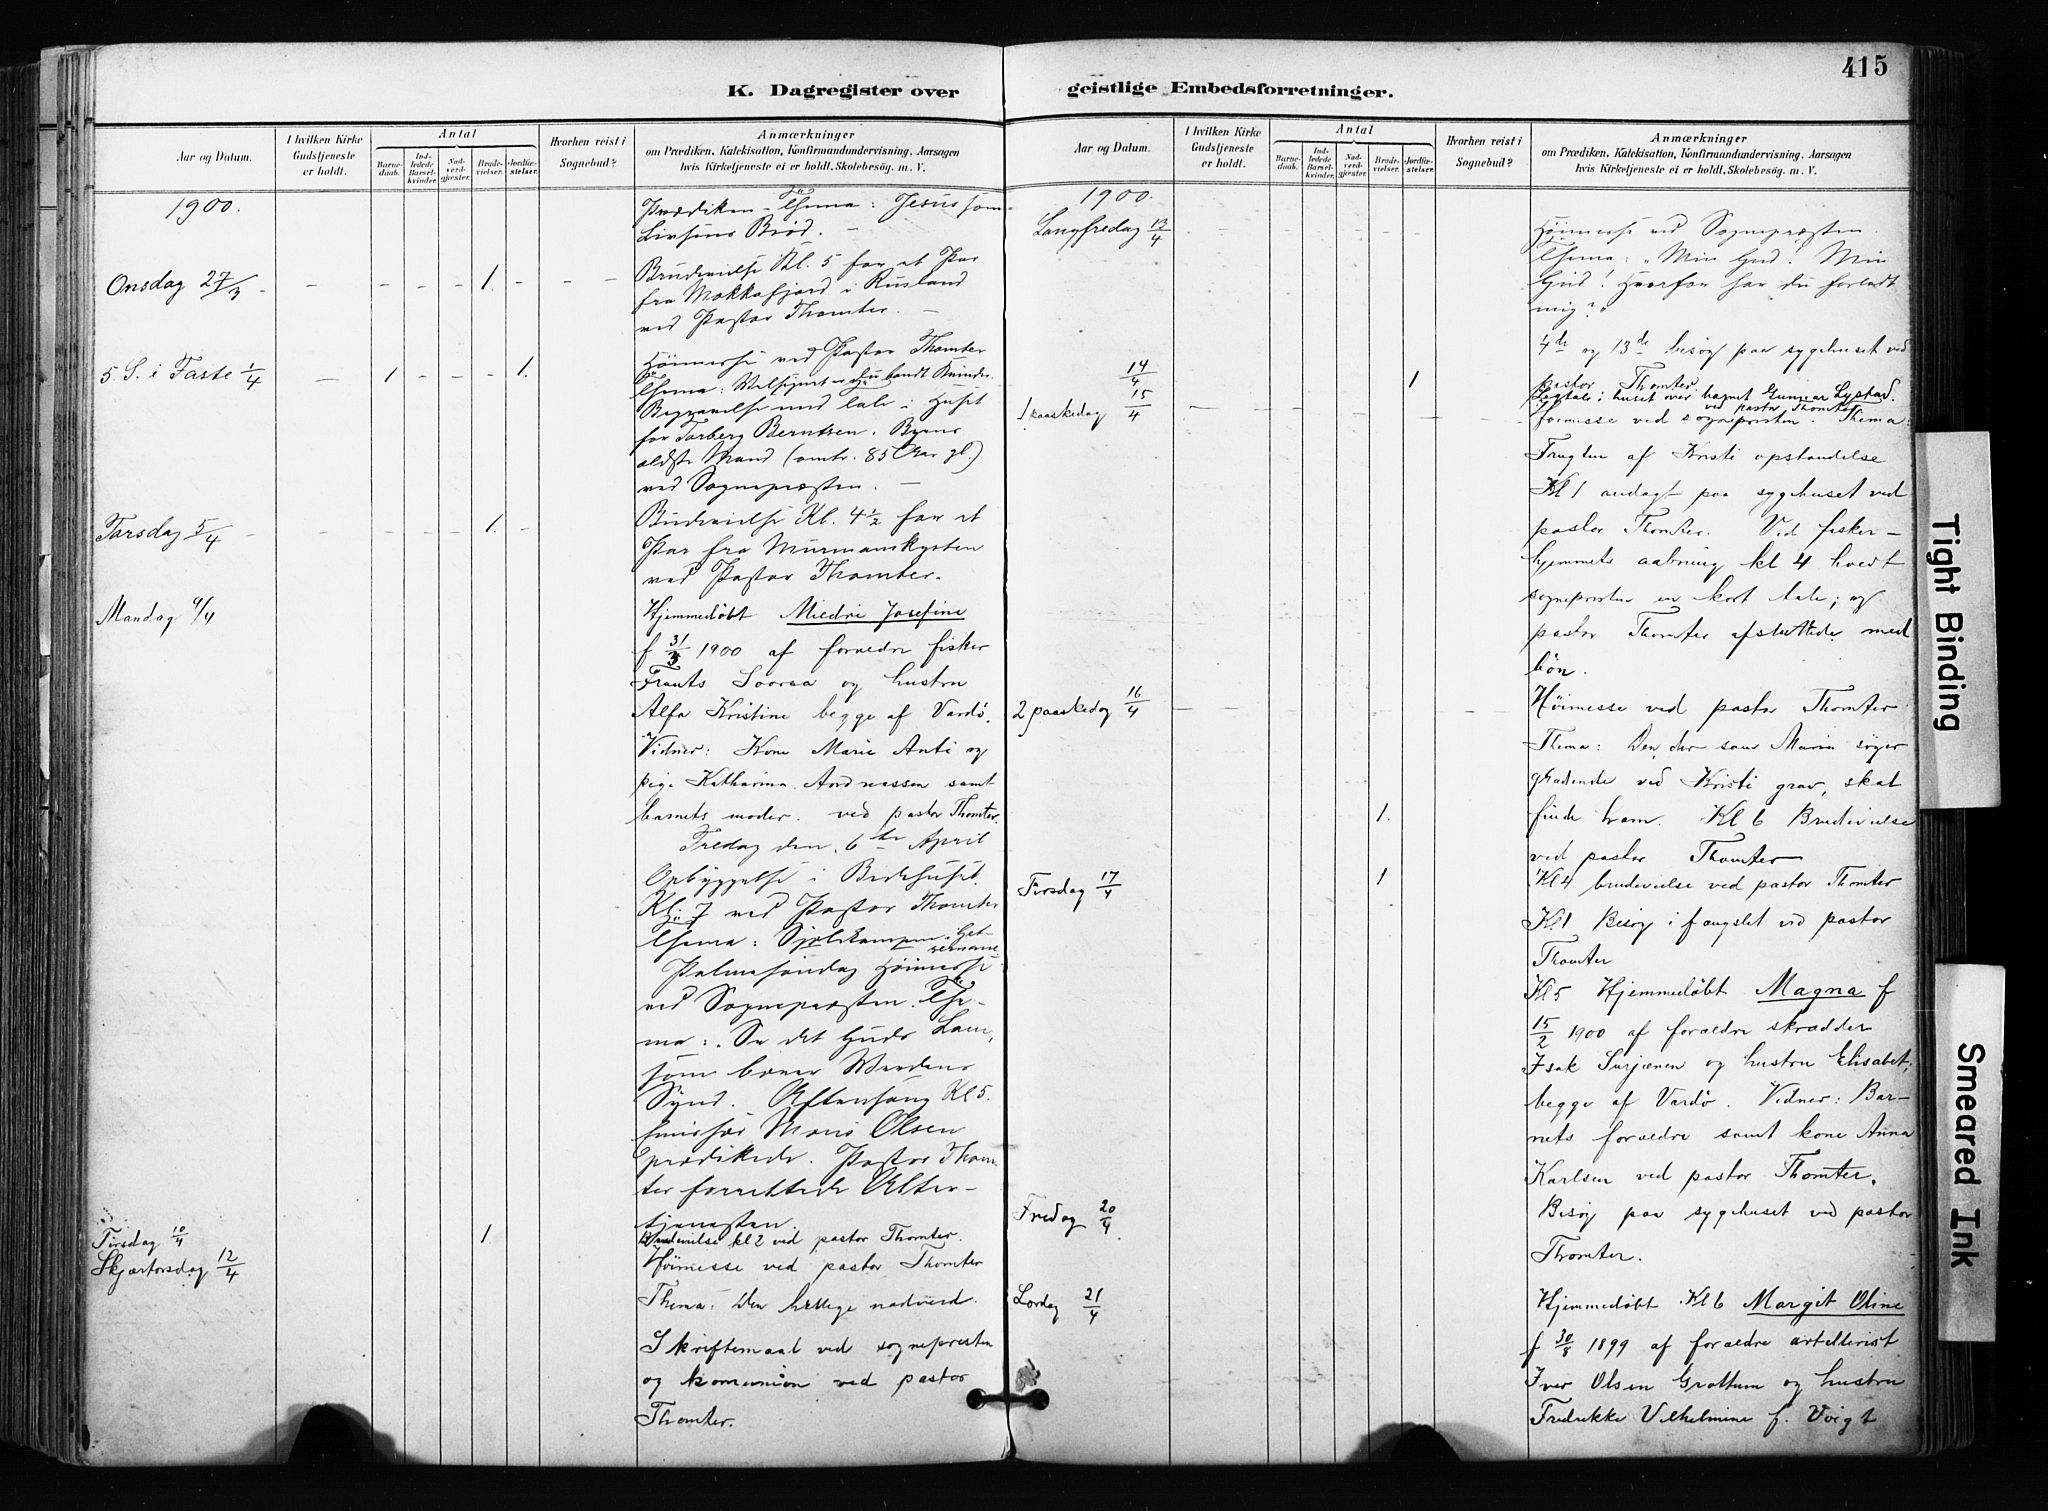 415
K. Dagregister over geistlige Embedsforretninger.
Aar og Datum.
I hvilken Kirke Gudstjeneste er holdt.
Antal
Barne-daab.
Ind-ledede Barsel-kvinder.
Nad-verd-gjester.
Brude-vielser.
Jordfæ-stelser.
Hvorhen reist i Sognebud?
Anmærkninger
om Prædiken, Katekisation, Konfirmandundervisning, Aarsagen
hvis Kirketjeneste ei er holdt, Skolebesøg. m. V.
1900.
Prædiken-Thema: Jesus som
Livsens Brød. –
Onsdag 27/3 – – – – – 1. – – –
Brudevielse Kl. 5 for et Par
fra Mokkafjord i Rusland
ved Pastor Thomter. –
5. S. i Faste 1/4 – 1 – – – 1.
Höimesse ved Pastor Thomter
Thema: Velsignet er Du blandt Kvinder.
Begravelse med tale i Huset
for Torberg Berntsen. Byens
ældste Mand (omtr. 85 Aar gl.)
ved Sognepræsten. –
Torsdag 5/4 – – – – – 1. –
Brudevielse Kl. 4 1/2 for et
Par fra Murmanskysten
ved Pastor Thomter.
Mandag 9/4
Hjemmedøbt Miedri Josefine
f 31/3 1900 af forældre fisker
Frants Sooraa og hustru
Alfa Kristine begge af Vardø.
Vidner: Kone Marie Anti og
pige Katharina Andreassen samt
barnets moder. ved pastor Thomter.
Fredag den 6te April
Opbyggelse i Bedehuset.
Kl. 7 ved Pastor Thomter
Thema: Sjælekampen i Get-
semane
Palmesöndag Höimesse
ved Sognepræsten. The-
ma: Se det Guds Lam,
som bærer Verdens
Synd. Aftensang Kl 5.
Emissær Moris Olsen
prædikede. Pastor Thom-
ter forrettede Alter-
tjenesten.
Tirsdag 10/4 1.
Brudevielse kl 2 ved pastor Thomter.
Skjærtorsdag 12/4
Höimesse ved pastor Thomter
Thema: Den hellige nadverd.
Skriftemaal ved sognepresten
og komunion ved pastor
Thomter.
Aar og Datum.
I hvilken Kirke Gudstjeneste er holdt.
Antal
Barne-daab.
Ind-ledede Barsel-kvinder.
Nad-verd-gjester.
Brude-vielser.
Jordfæ-stelser.
Hvorhen reist i Sognebud?
Anmærkninger
om Prædiken, Katekisation, Konfirmandundervisning, Aarsagen
hvis Kirketjeneste ei er holdt, Skolebesøg. m. V.
1900.
Langfredag 13/4 – – – – – – –
Höimesse ved Sognepræsten.
Thema: "Min Gud! Min
Gud! Hvorfor har du forladt
mig?"
4de og 13de besög paa sygehuset ved
pastor Thomter.
14/4 1
Ligtale i huset over barnet Gunnar Lystad.
ved pastor Thomter
1 paaskedag 15/4 – – – – – – –
Høimesse ved sognepresten. Thema:
Frugten af Kristi opstandelse
Kl 1 andagt paa sygehuset ved
pastor Thomter. Ved fisker-
hjemmets aabning kl 4 holdt
sognepresten en kort tale; og
pastor Thomter afsluttede med
bön.
2 paaskedag 16/4 – – – – – – –
Höimesse ved pastor Thomter
Thema: Den der som Maria söger
grædende ved Kristi grav, skal
finde ham. Kl 6 Brudevielse
ved pastor Thomter
1.
Tirsdag 17/4 1
Kl 4 brudevielse ved pastor Thomter
Kl 1 Besög i fængslet ved pastor
Thomter
Kl 5 Hjemmedöbt Magna f
15/2 1900 af forældre skrædder
Isak Surjænen og hustru Elisabet,
begge af Vardö. Vidner: Bar-
nets forældre samt kone Anna
Karlsen ved pastor Thomter.
Fredag 20/4
Besög paa sygehuset ved pastor
Thomter.
Lördag 21/4
Hjemmedöbt Kl 6 Margit Oline
f 30/8 1899 af forældre artillerist
Iver Olsen Grottum og hustru
Fredrikke Vilhelmine f. Voigt
Tight Binding
Smeared Ink